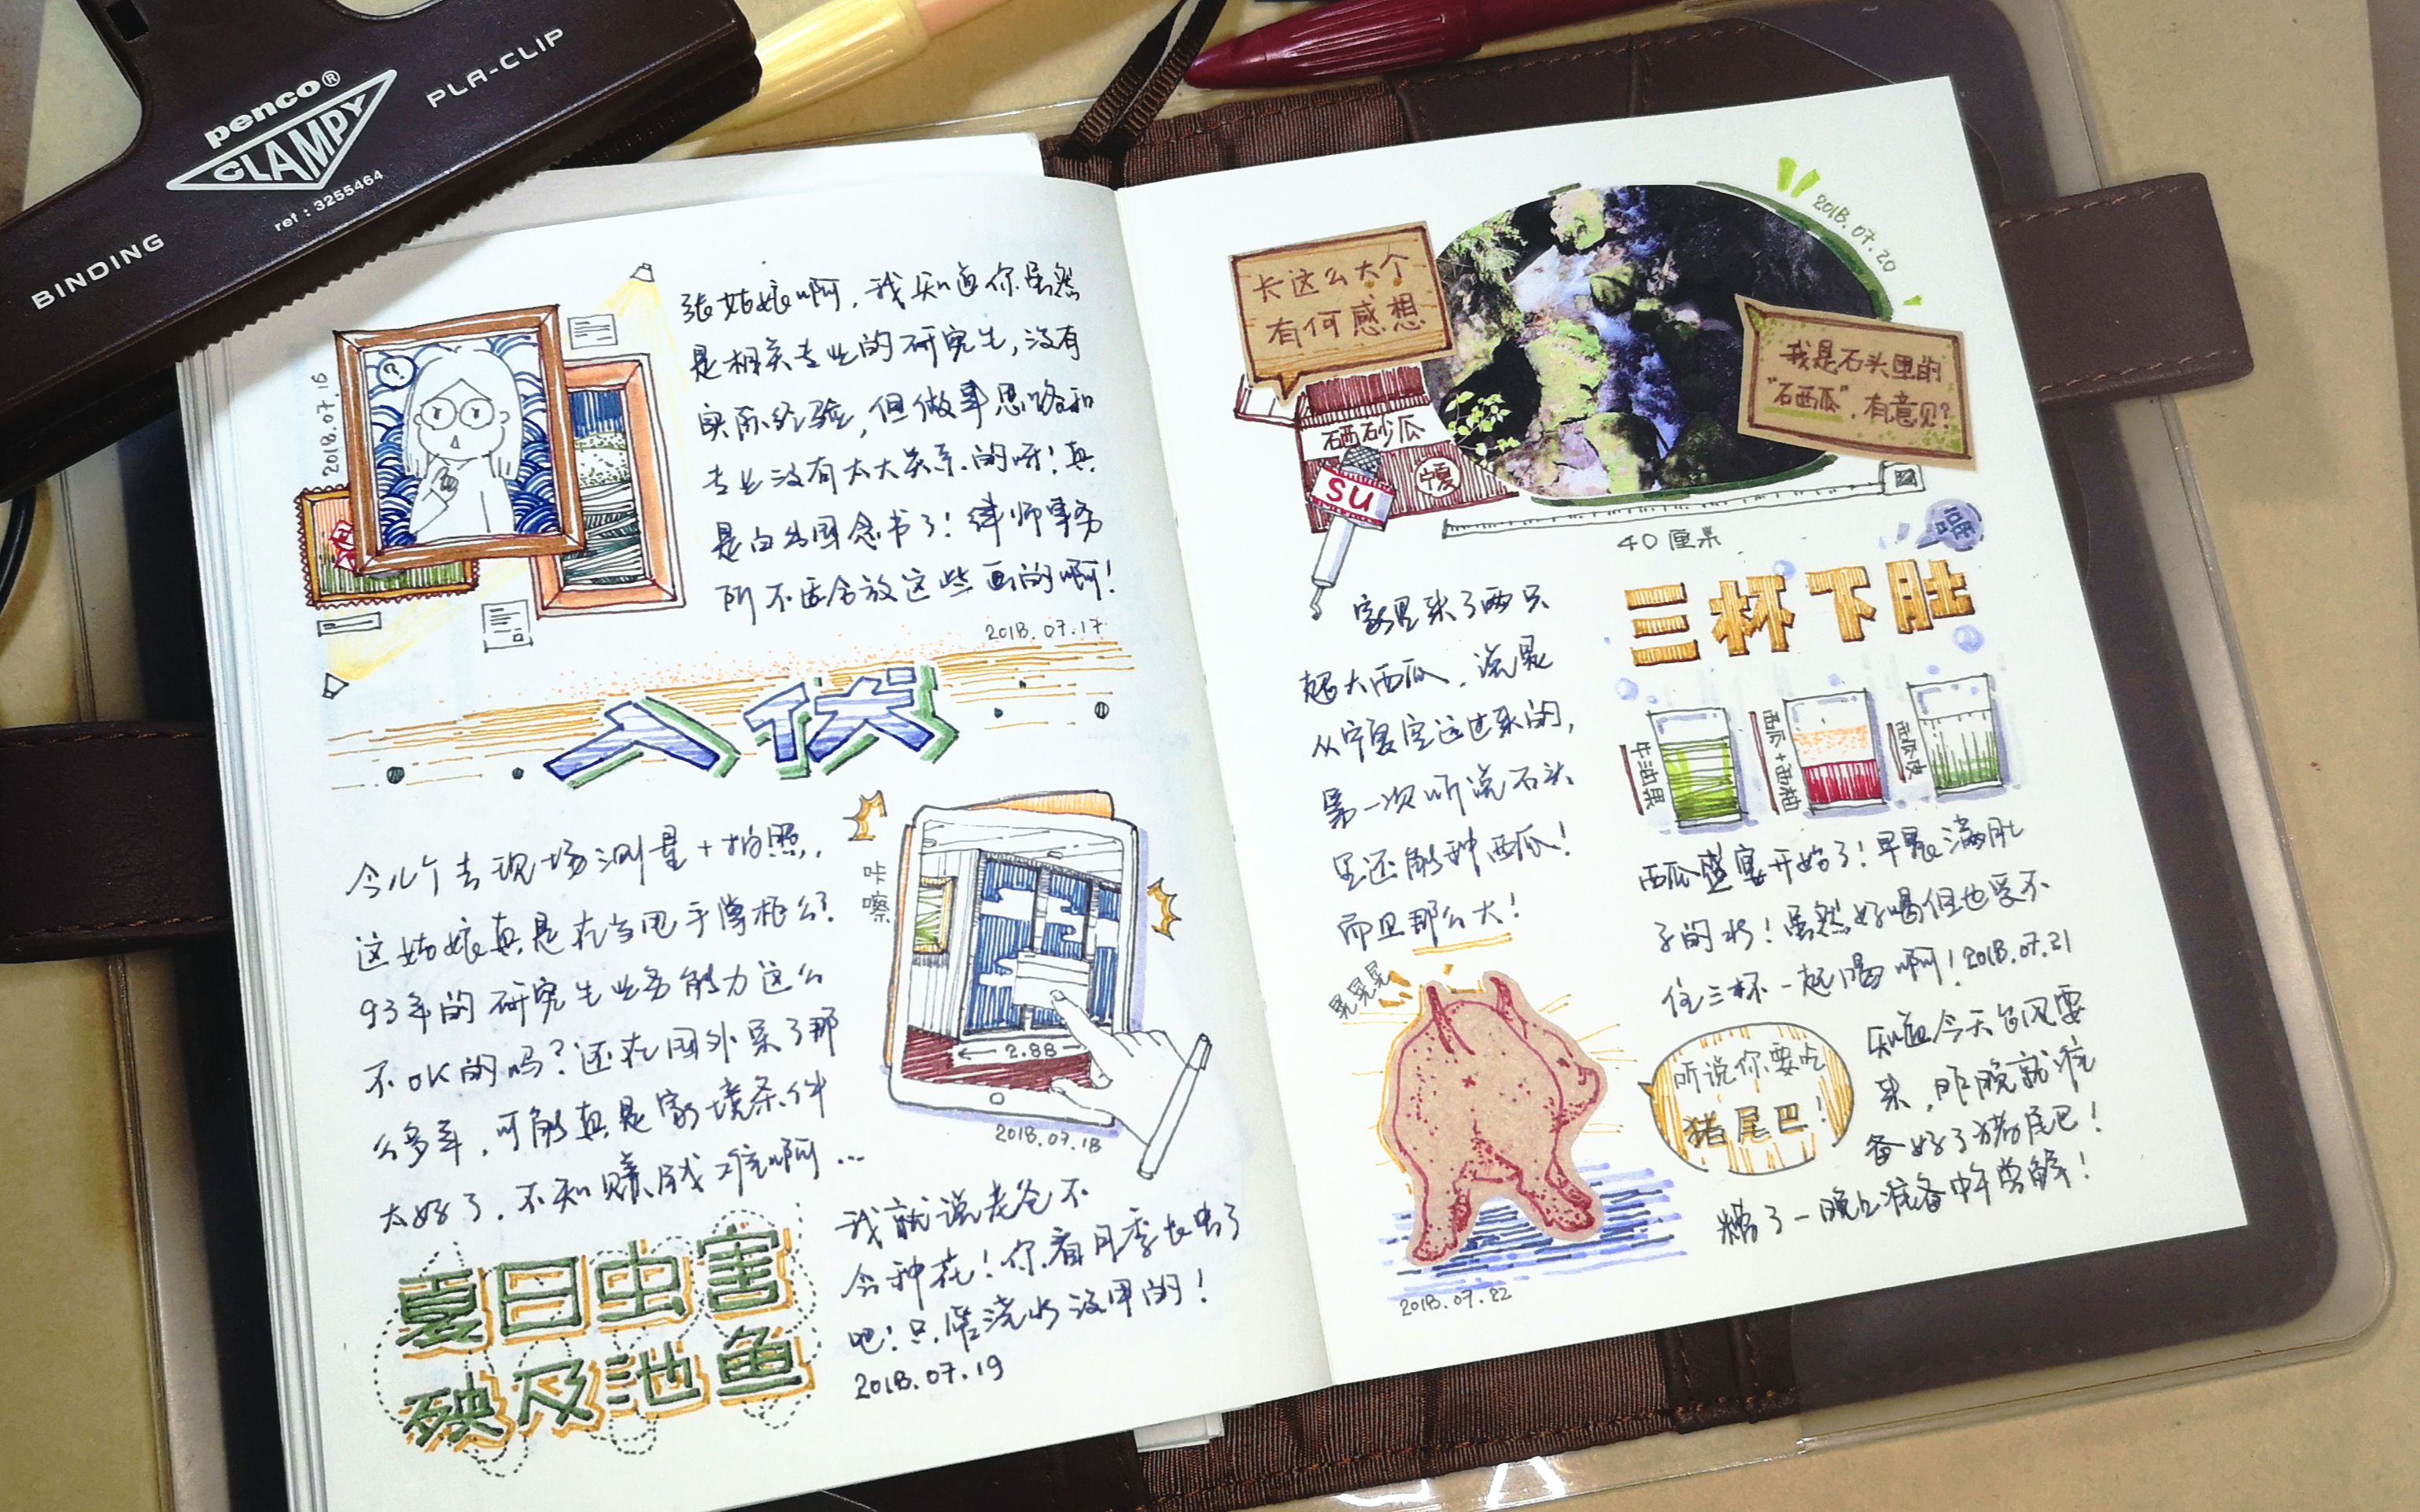 penco®
CLAMPY
PLA-CLIP
BINDING
ref : 3255464
2018.07.16
?
张姑娘啊，我知道你虽然
是相关专业的研究生，没有
实际经验，但做事思路和
专业没有太大关系的呀！真
是白出国念书了！律师事务
所不适合放这些画的啊！
2018.07.17
入伏
今儿个去现场测量+拍照，
这姑娘真是在当甩手掌柜么？
93年的研究生业务能力这么
不OK的吗？还在国外呆了那
么多年，可能真是家境条件
太好了，不知赚钱难啊…
咔嚓
2.88
2018.07.18
夏日虫害
殃及池鱼
我就说老爸不
会种花！你看月季长虫了
吧！只管浇水没用的！
2018.07.19
2018.07.20
长这么大个
有何感想
我是石头里的
“石西瓜”，有意见？
硒砂瓜
宁夏
SU
40厘米
家里来了两只
超大西瓜，说是
从宁夏空运过来的，
第一次听说石头
里还能种西瓜！
而且那么大！
嗝
三杯下肚
牛油果
西瓜皮
西瓜盛宴开始了！早晨满肚
子的水！虽然好喝但也受不
住三杯一起喝啊！2018.07.21
晃晃晃
听说你要吃
猪尾巴！
知道今天台风要
来，昨晚就准
备好了猪尾巴！
糟了一晚上准备中午尝鲜！
2018.07.22